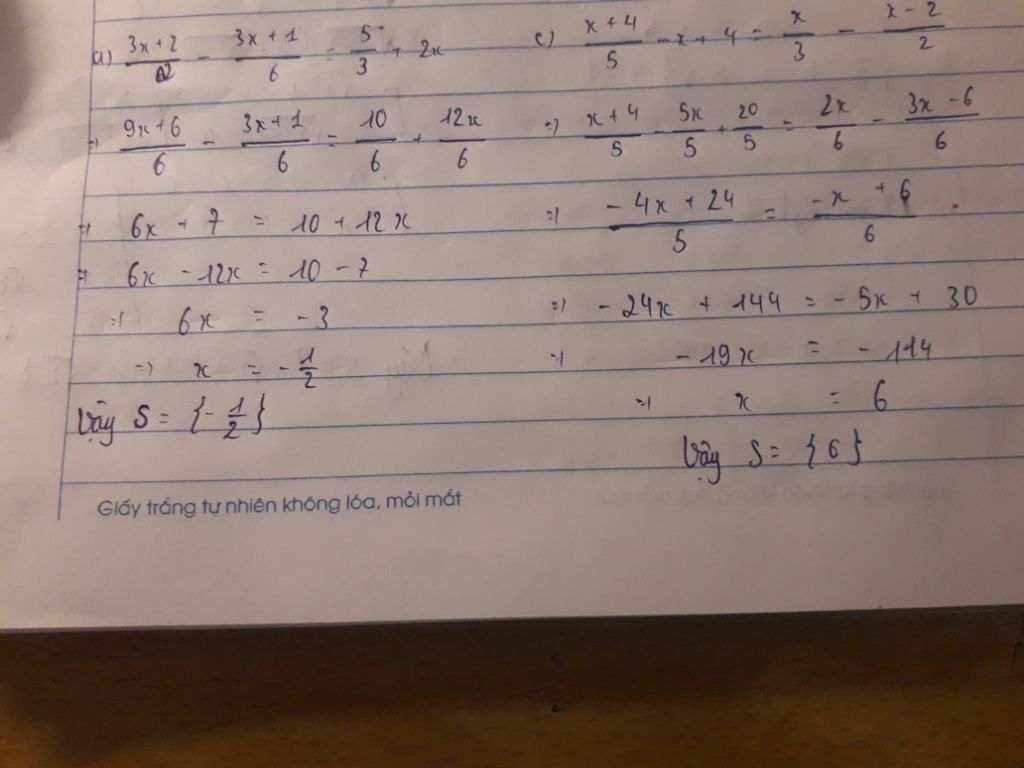 a) (3x+2)/2 - (3x+1)/6 = 5/3 + 2x
=> (9x+6)/6 - (3x+1)/6 = 10/6 + 12x/6
=> 6x + 7 = 10 + 12x
=> 6x - 12x = 10 - 7
=> 6x = -3
=> x = -1/2
Vậy S = {-1/2}
c) (x+4)/5 - x + 4 = x/3 - (x-2)/2
=> (x+4)/5 - 5x/5 + 20/5 = 2x/6 - (3x-6)/6
=> (-4x+24)/5 = (-x+6)/6
=> -24x + 144 = -5x + 30
=> -19x = -114
=> x = 6
Vậy S = {6}
Giấy trắng tự nhiên không lóa, mỏi mắt